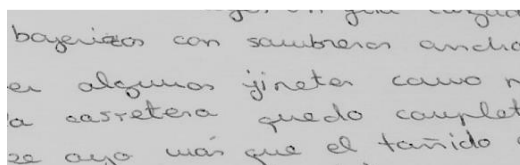 boyerizos con sombreros ancho
en algunos jinetes como
a carretera quedo complet
se oyo más que el tañido